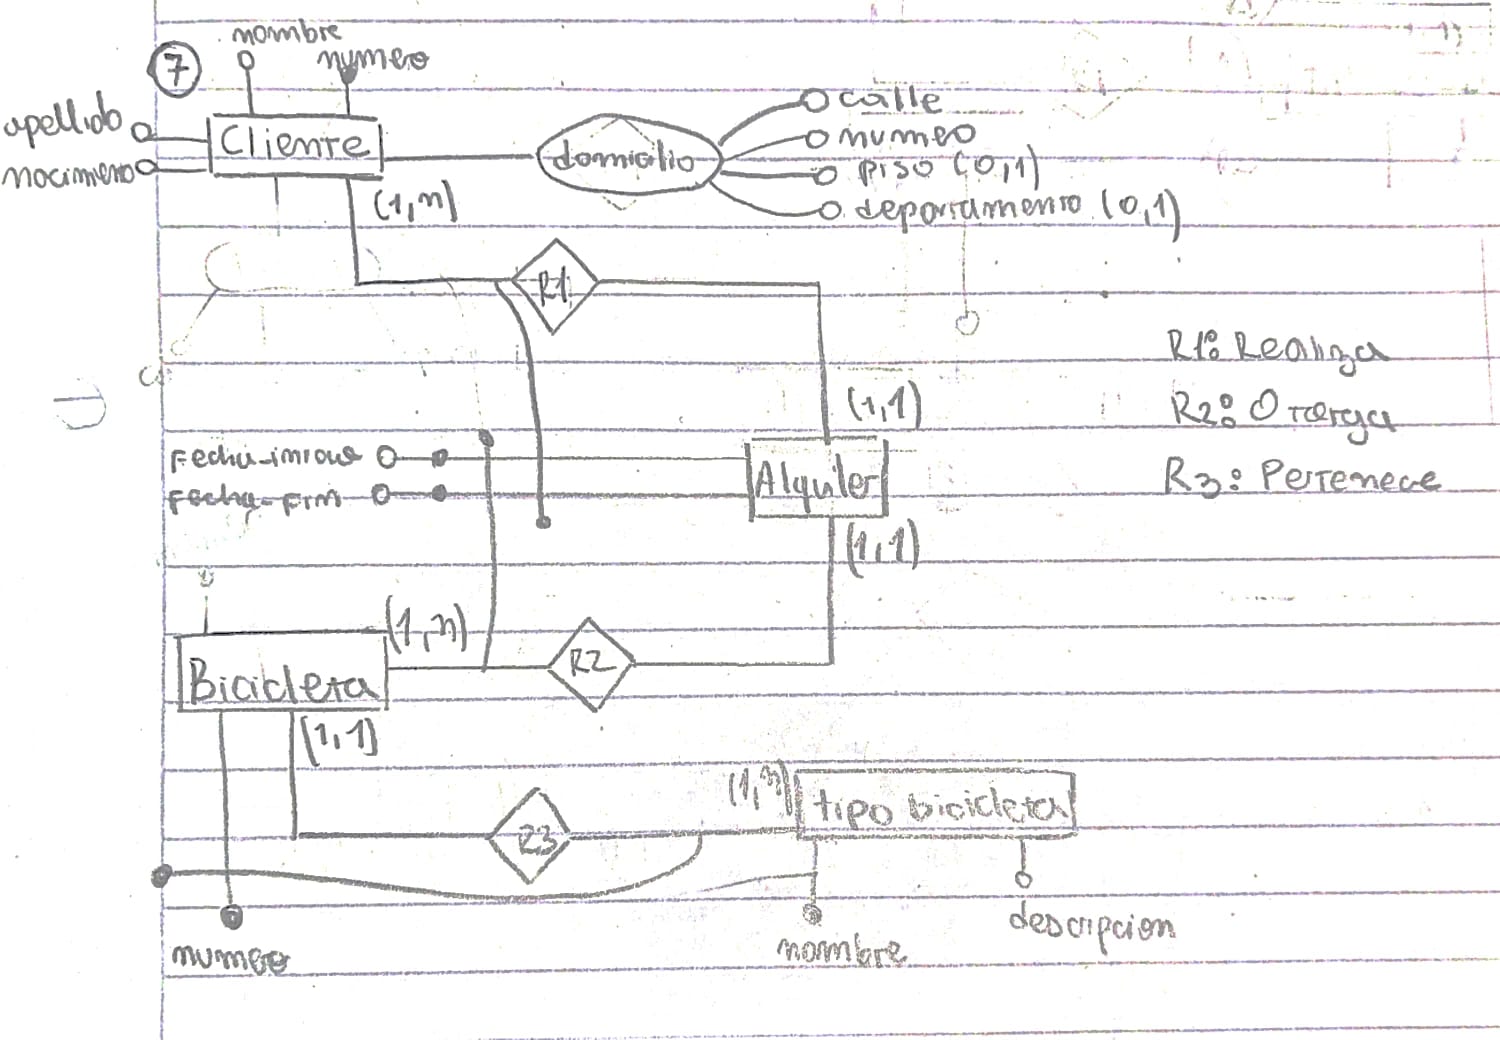 7
nombre
numero
apellido
nacimiento
Cliente
domicilio
calle
numero
piso (0,1)
departamento (0,1)
(1,n)
R1
R1: Realiza
R2: Otorga
R3: Pertenece
(1,1)
Fecha-inicio
Fecha-fin
Alquiler
(1,1)
(1,n)
R2
Bicicleta
(1,1)
(1,n)
tipo bicicleta
R3
numero
nombre
descripcion